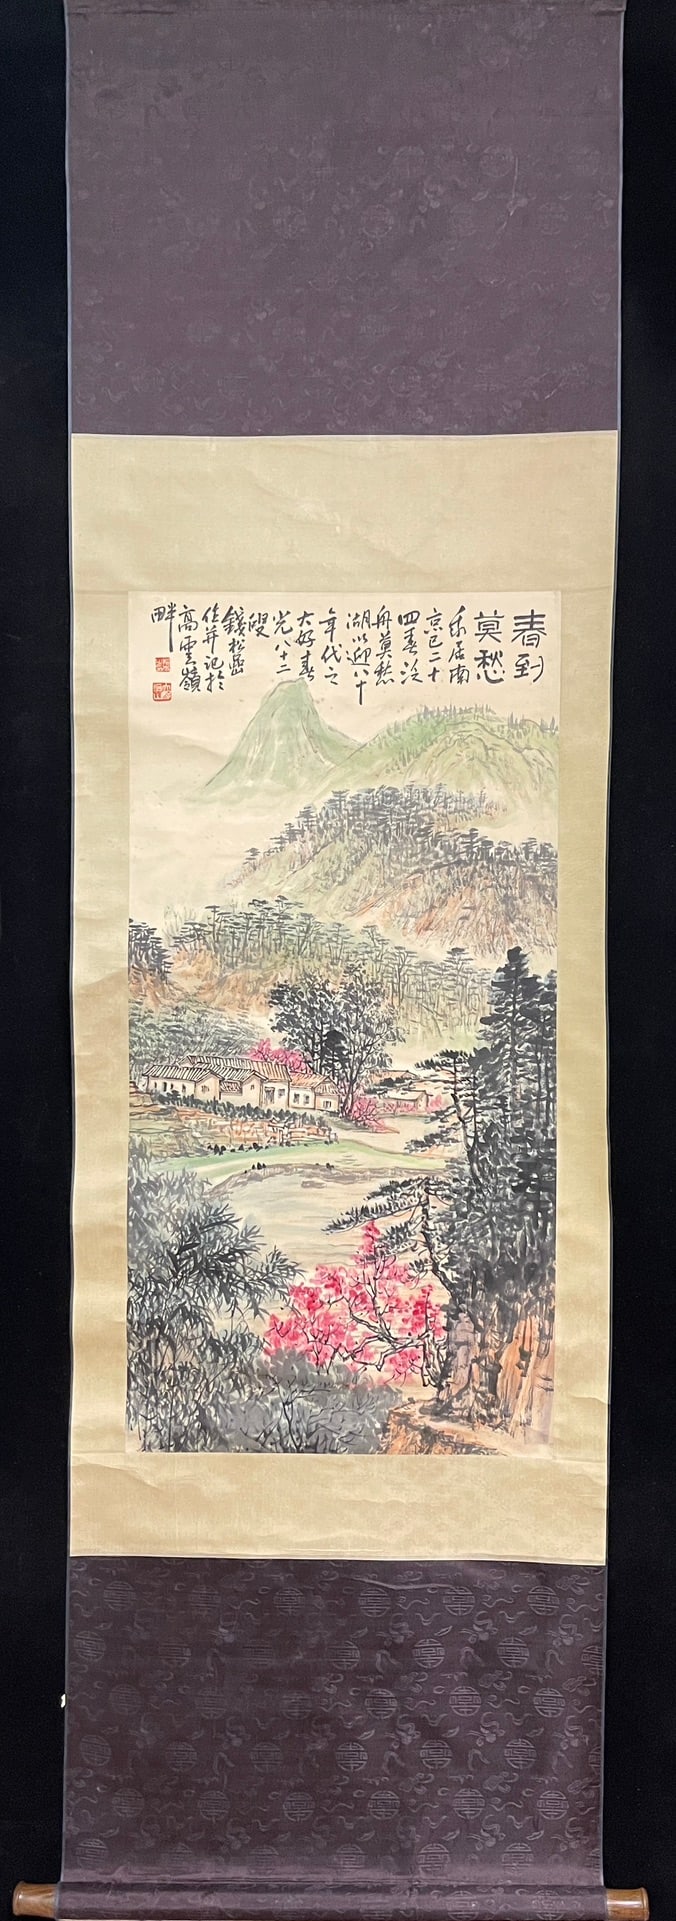 春到
莫愁
乐居南
京已二十
四春泛
舟莫愁
湖以迎八十
年代之
大好春
光八十二
叟
錢松嵒
作并记於
高雲嶺
畔